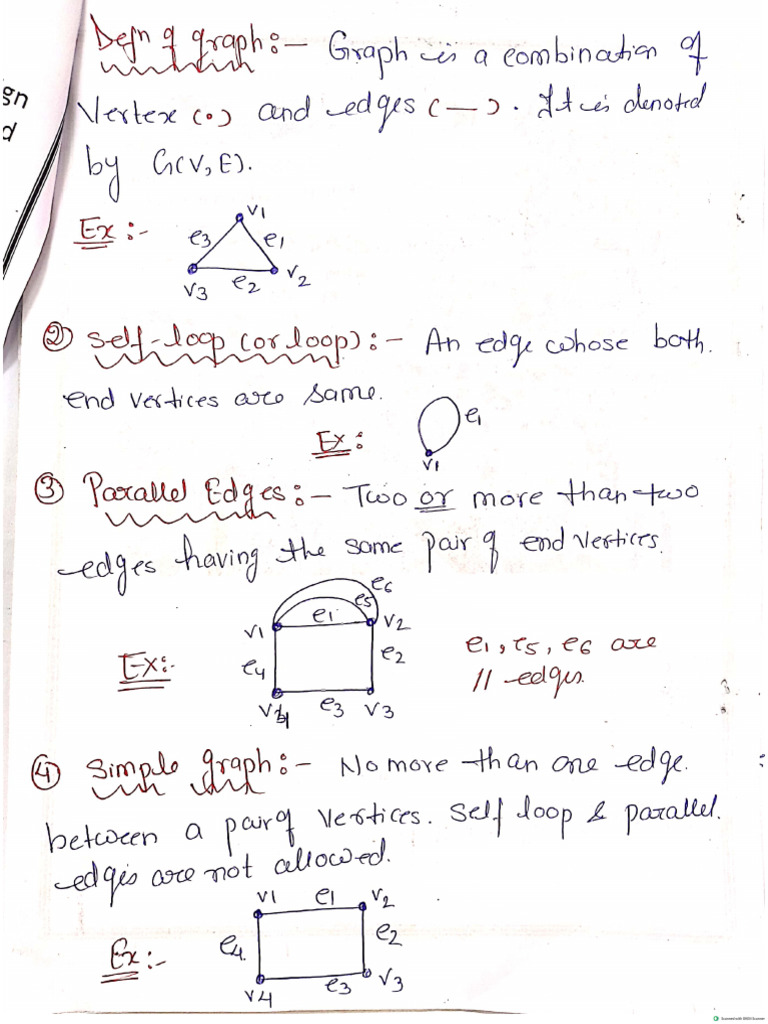 gn
d
Defn of graph:- Graph is a combination of
Vertex (•) and edges (—). It is denoted
by G(V, E).
Ex:-
v1
e3 e1
v3 e2 v2
② Self-loop (or loop):- An edge whose both.
end vertices are same.
Ex:
e1
v1
③ Parallel Edges:- Two or more than two
edges having the same pair of end vertices.
e6
e5
v1 e1 v2
Ex:- e4 e2
e1, e5, e6 are
// edges.
v4 e3 v3
④ Simple graph:- No more than one edge.
between a pair of vertices. Self loop & parallel.
edges are not allowed.
v1 e1 v2
Ex:- e4 e2
v4 e3 v3
Scanned with OKEN Scanner